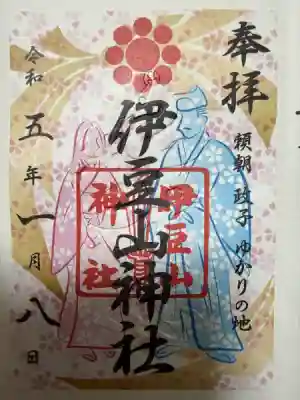 奉拝
頼朝 政子 ゆかりの地
伊豆山神社
令和五年一月八日